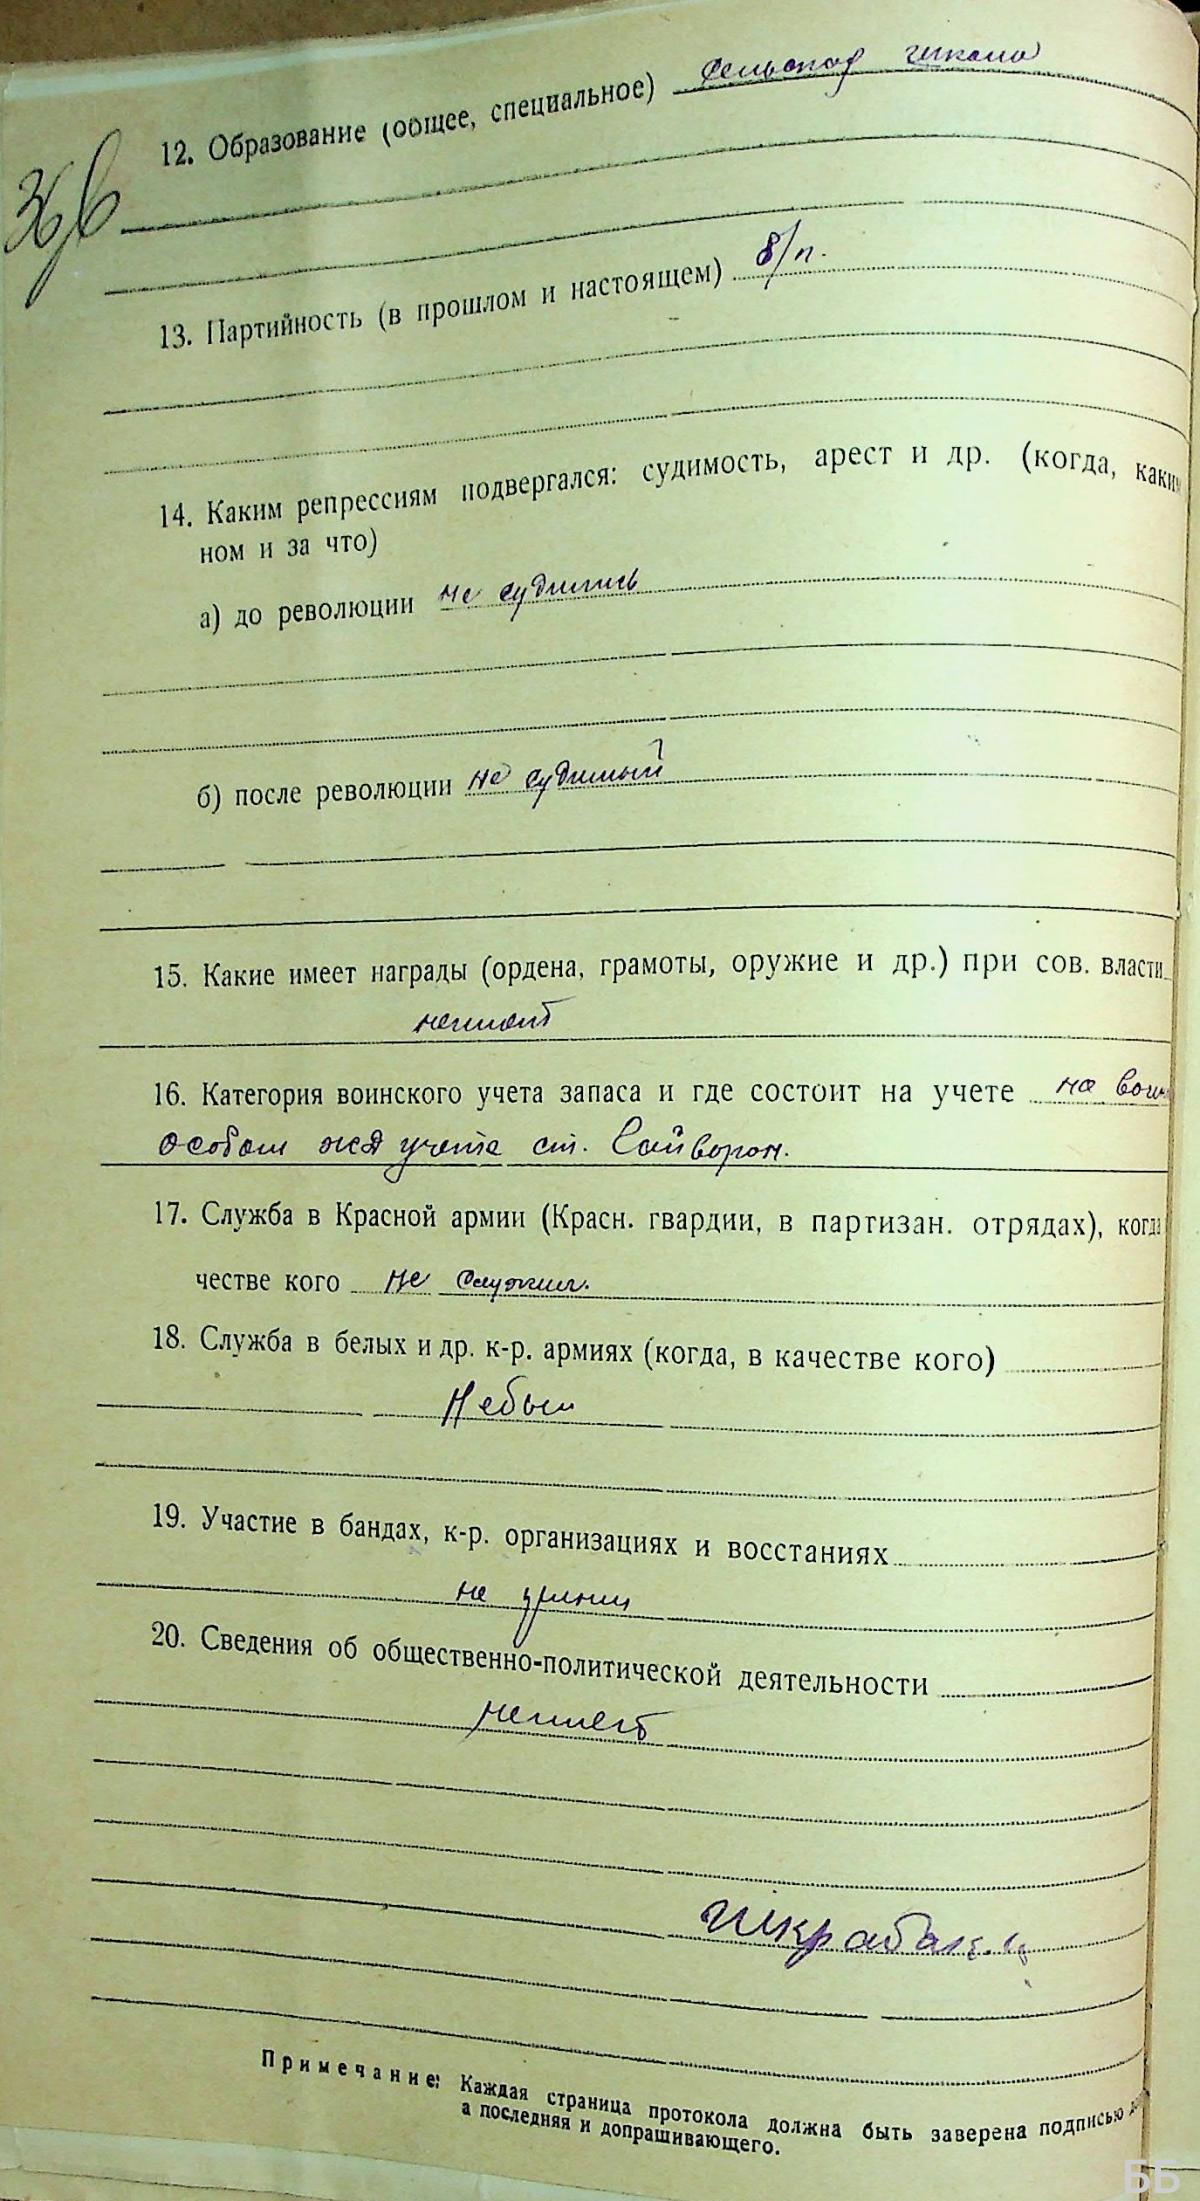 сельская школа
12. Образование (общее, специальное)
36
13. Партийность (в прошлом и настоящем) б/п.
14. Каким репрессиям подвергался: судимость, арест и др. (когда, каким
ном и за что)
а) до революции не судились
б) после революции не судимый
15. Какие имеет награды (ордена, грамоты, оружие и др.) при сов. власти
неимеет
16. Категория воинского учета запаса и где состоит на учете на воин
особом учете ст. Сайворон.
17. Служба в Красной армии (Красн. гвардии, в партизан. отрядах), когда
честве кого не служил.
18. Служба в белых и др. к-р. армиях (когда, в качестве кого)
Небыл
19. Участие в бандах, к-р. организациях и восстаниях
не
20. Сведения об общественно-политической деятельности
неимеет
Примечание: Каждая страница протокола должна быть заверена подписью
а последняя и допрашивающего.
ББ